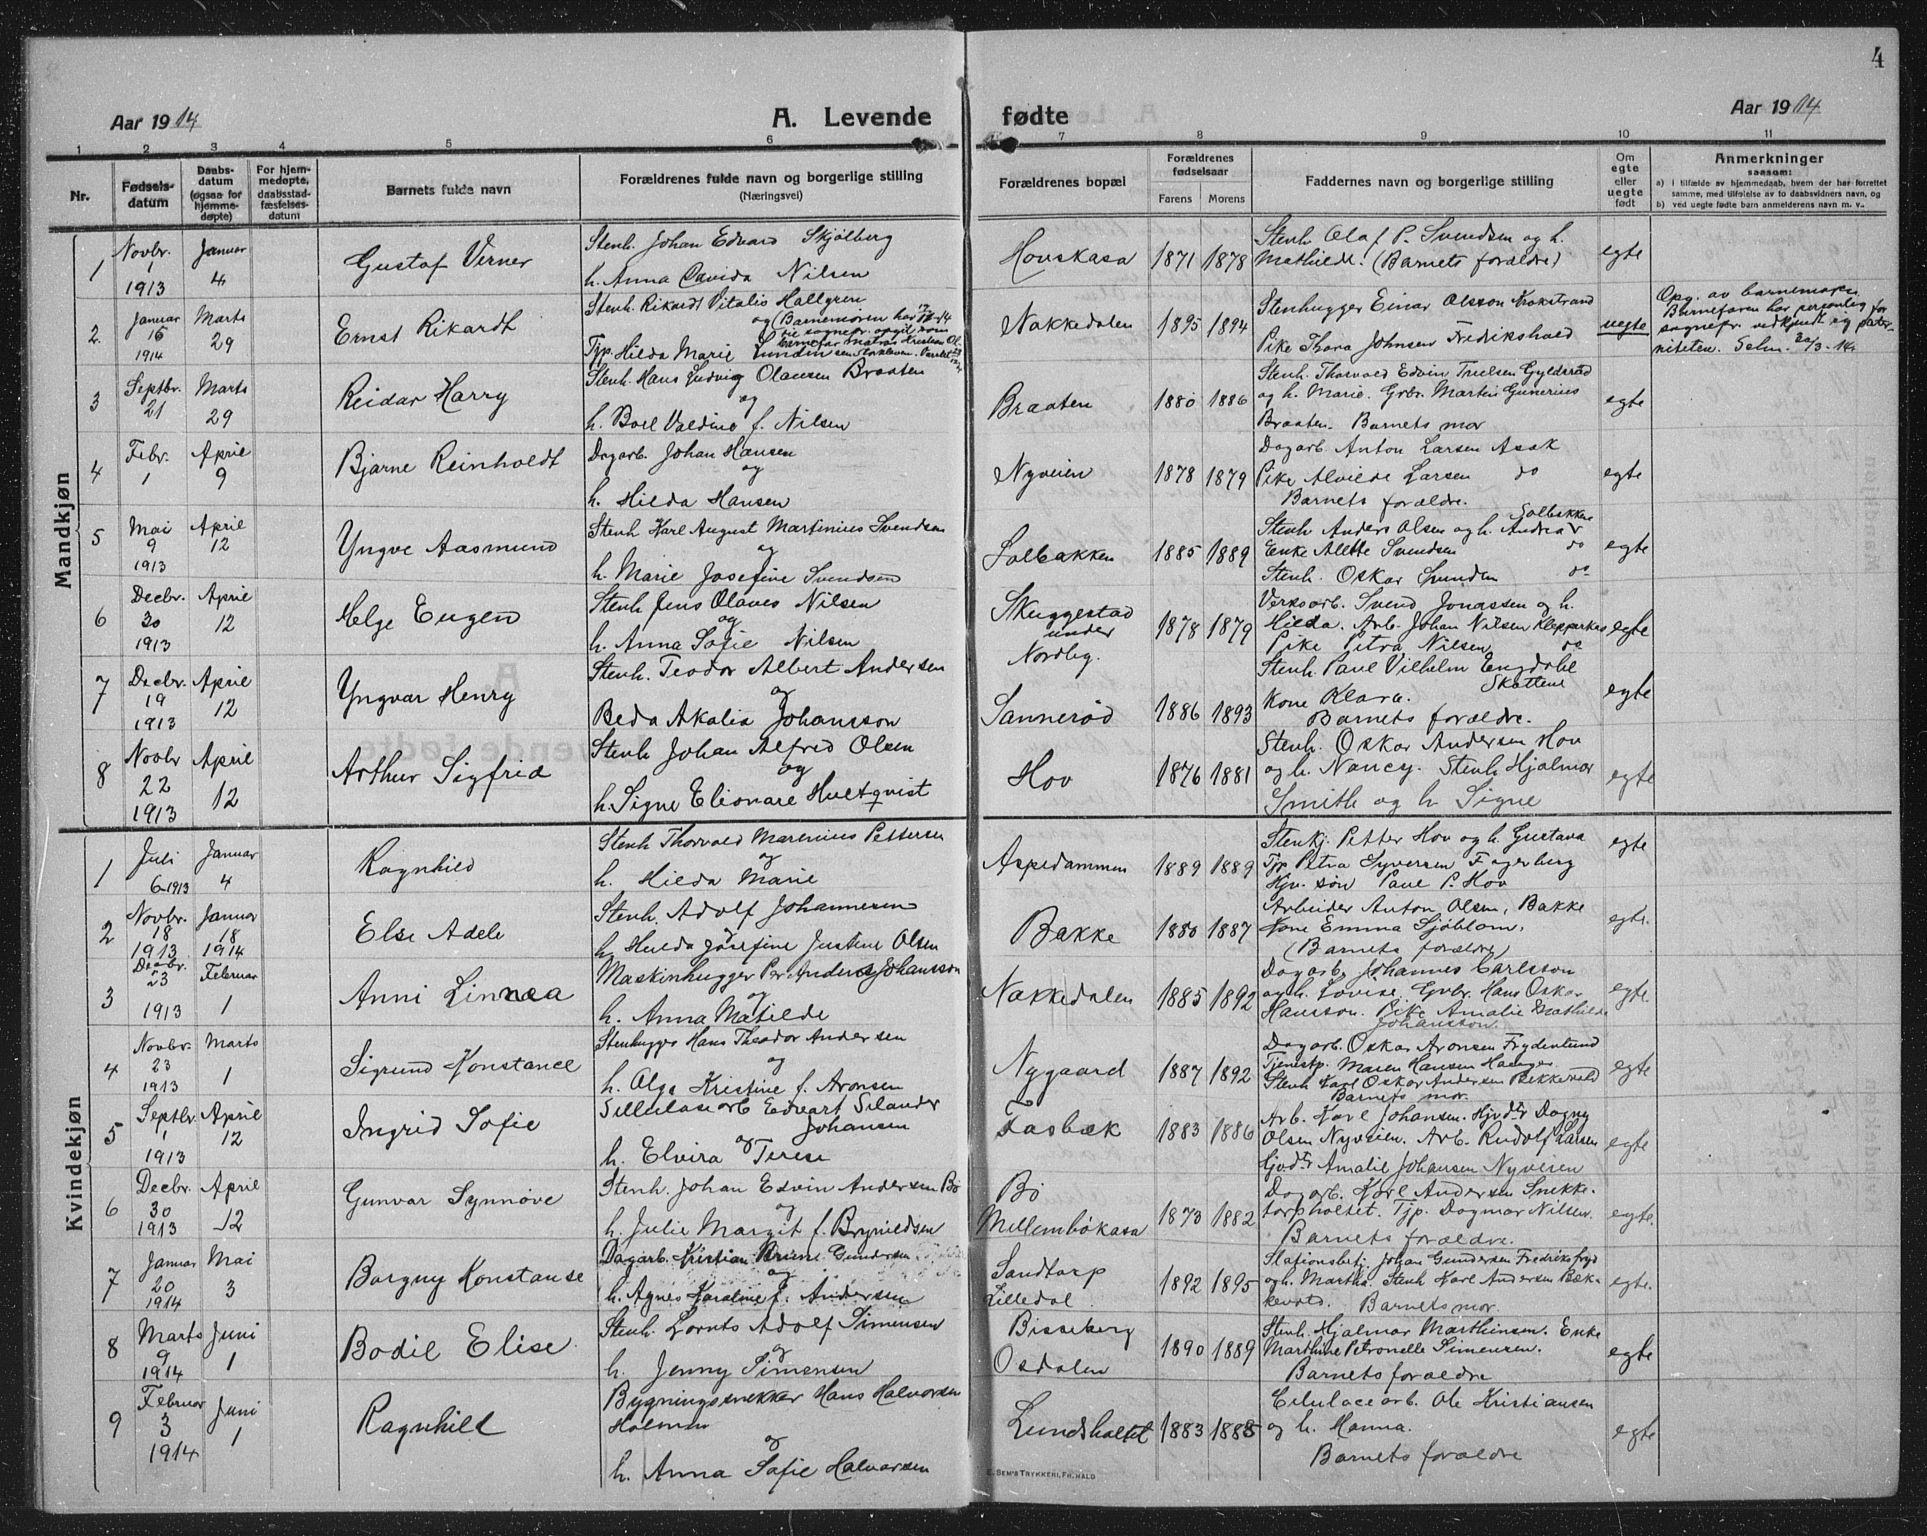 4
Aar 1914
A. Levende
fødte
Aar 1914
1 2 3 4 5 6 7 8 9 10 11
Nr.
Fødsels-
datum
Daabs-
datum
(ogsaa for
hjemme-
døpte)
For hjem-
medøpte,
daabsstad-
fæstelses-
datum
Barnets fulde navn
Forældrenes fulde navn og borgerlige stilling
(Næringsvei)
Forældrenes bopæl
Forældrenes
fødselsaar
Farens Morens
Faddernes navn og borgerlige stilling
Om
egte
eller
uegte
født
Anmerkninger
saasom:
a) i tilfælde av hjemmedaab, hvem der har forrettet
samme, med tilføielse av to daabsvidners navn, og
b) ved uegte fødte barn anmelderens navn m. v.
Mandkjøn
1
Novbr.
1
1913
Januar
4
Gustaf Verner
Stenh. Johan Edvard Skjølberg
h. Anna Davida Nilsen
Hovskasa
1871 1878
Stenh. Olaf P. Svendsen og h.
Mathilde. (Barnets forældre)
egte
2.
Januar
16
1914
Marts
29
Ernst Rikardt
Stenh. Rikardt Vitalis Hallgren
og (Barnemoren har
til sognepr. opgit som
barnefar
Tjp. Hilda Marie Lundin
Nakkedalen
1895 1894
Stenhugger Einar Olsson Krokstrand
Pike Thora Johnsen Fredrikshald
uegte
Opg. av barnemoren
Barnefaren har personlig for
sognepr. vedkjendt sig pater-
niteten.
3
Septbr.
21
Marts
29
Reidar Harry
Stenh. Hans Ludvig Olausen Braaten
og
h. Boel Valdine f. Nilsen
Braaten
1880 1886
Stenh. Thorvald Edvin Truelsen Gyldsrød
og h. Marie. Grbr. Martin Gunerius
Braaten. Barnets mor
egte
4
Febr.
1
April
9
Bjarne Reinholdt
Dagarb. Johan Hansen
og
h. Hilda Hansen
Nyveien
1878 1879
Dagarb. Anton Larsen Asak
Pike Alvilde Larsen do
Barnets forældre.
egte
5
Mai
9
1913
April
12
Yngve Aasmund
Stenh. Karl August Martinius Svendsen
og
h. Marie Josefine Svendsen
Solbakken
1885 1889
Solbakken
Stenh. Anders Olsen og h. Andrea
Enke Alette Svendsen do
Stenh. Oskar do
egte
6
Decbr.
30
1913
April
12
Helge Eugen
Stenh. Jens Olaves Nilsen
og
h. Anna Sofie Nilsen
Skuggestad
under
Nordby.
1878 1879
Verksarb. Svend Jonassen og h.
Hilda. Arb. Johan Nilsen Klepparkas
Pike Petra Nilsen do
egte
7
Decbr.
19
1913
April
12
Yngvar Henry
Stenh. Teodor Albert Andersen
og
Beda Akalia Johansson
Sannerød
1886 1893
Stenh. Paul Vilhelm Engdahl
Skottene
Kone Klara.
Barnets forældre.
egte
8
Novbr
22
1913
April
12
Arthur Sigfrid
Stenh. Johan Alfred Olsen
og
h. Signe Elionare Hultqvist
Hov
1876 1881
Stenh. Oskar Andersen Hov
og h. Nancy. Stenh. Hjalmar
Smith og h. Signe
egte
Kvindekjøn
1
Juli
6 1913
Januar
4
Ragnhild
Stenh. Thorvald Marenius Pettersen
og
h. Hilda Marie
Aspedammen
1889 1889
Stenkj. Petter Hov og h. Gustava
Tjp. Petra Syversen Fagerberg
Hjv. søn Paul P. Hov
egte
2
Novbr.
18
1913
Januar
18
1914
Else Adele
Stenh. Adolf Johannesen
og
h. Hulda Josefine Justine Olsen
Bakke
1880 1887
Arbeider Anton Olsen, Bakke
Kone Emma Sjöblom,
(Barnets forældre)
egte.
3
Decbr.
23
1913
Februar
1
Anni Linnea
Maskinhugger Per Anders Johansson
og
h. Anna Matilde
Nakkedalen
1885 1892
Dagarb. Johannes Carlsson
og h. Lovise, Grbr. Hans Oskar
Hansson. Pike Amalie Mathilde
Johansson.
egte.
4
Novbr.
23
1913
Marts
1
Sigrund Konstance
Stenhugger Hans Theodor Andersen
og
h. Olga Kristine f. Aronsen
Nygaard
1887 1892
Dagarb. Oskar Aronsen Frydenlund
Tjenestp. Maren Hansen
Stenh. Karl Oskar Andersen Bækkevold
Barnets mor.
egte
5
Septbr.
1
1913
April
12
Ingrid Sofie
Sellulosearb Edvart Selander
Johansen
og
h. Elvira Terese
Fasbæk
1883 1886
Arb. Karl Johansen. Hjvdtr Dagny
Olsen Nyveien. Arb. Rudolf Larsen
Gjvdtr Amalie Johansen Nyveien
egte
6
Decbr.
30
1913
April
12
Gunvar Synnøve
Stenh. Johan Edvin Andersen Bö
og
h. Julie Margit f. Brynildsen
Bö
Mellembökasa
1873 1882
Dagarb. Karl Andersen Snikke-
torpholtet. Tjp. Dagmar Nilsen.
Barnets forældre.
egte.
7
Januar
20
1914
Mai
3
Borgny Konstanse
Dagarb. Kristian Gundersen
og
h. Agnes Karoline f. Andersen
Sandtorp
Lilledal
1892 1895
Stationsbetj. Johan Gundersen Fredriksfryd
og h. Martha. Stenh Karl Andersen Bæk-
kevold. Barnets mor.
egte.
8
Marts
9
1914
Juni
1
Bodil Elise.
Stenh. Lornts Adolf Simensen
og
h. Jenny Simensen
Bisseberg
Osdalen
1890 1889
Stenh. Hjalmar Marthinsen. Enke
Marthine Petronelle Simensen.
Barnets forældre
egte
9
Februar
3
1914
Juni
1
Ragnhild
Bygningssnekker Hans Halvorsen
Holmen
og
h. Anna Sofie Halvorsen
Lundsholtet
1883 1888
Cellulosearb. Ole Kristiansen
og h. Hanna.
Barnets forældre
egte
E. SEM'S TRYKKERI, FR.HALD